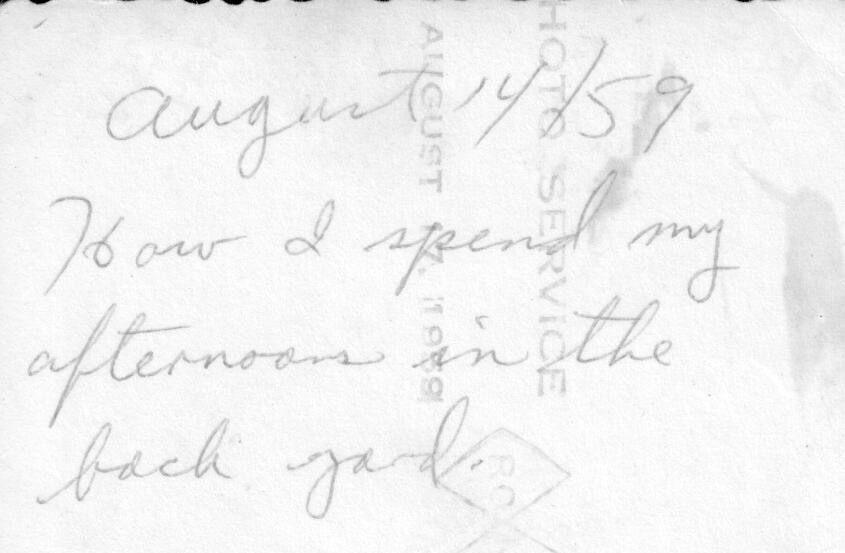 August 14/59
How I spend my
afternoons in the
back yard.
HOTO SERVICE
AUGUST